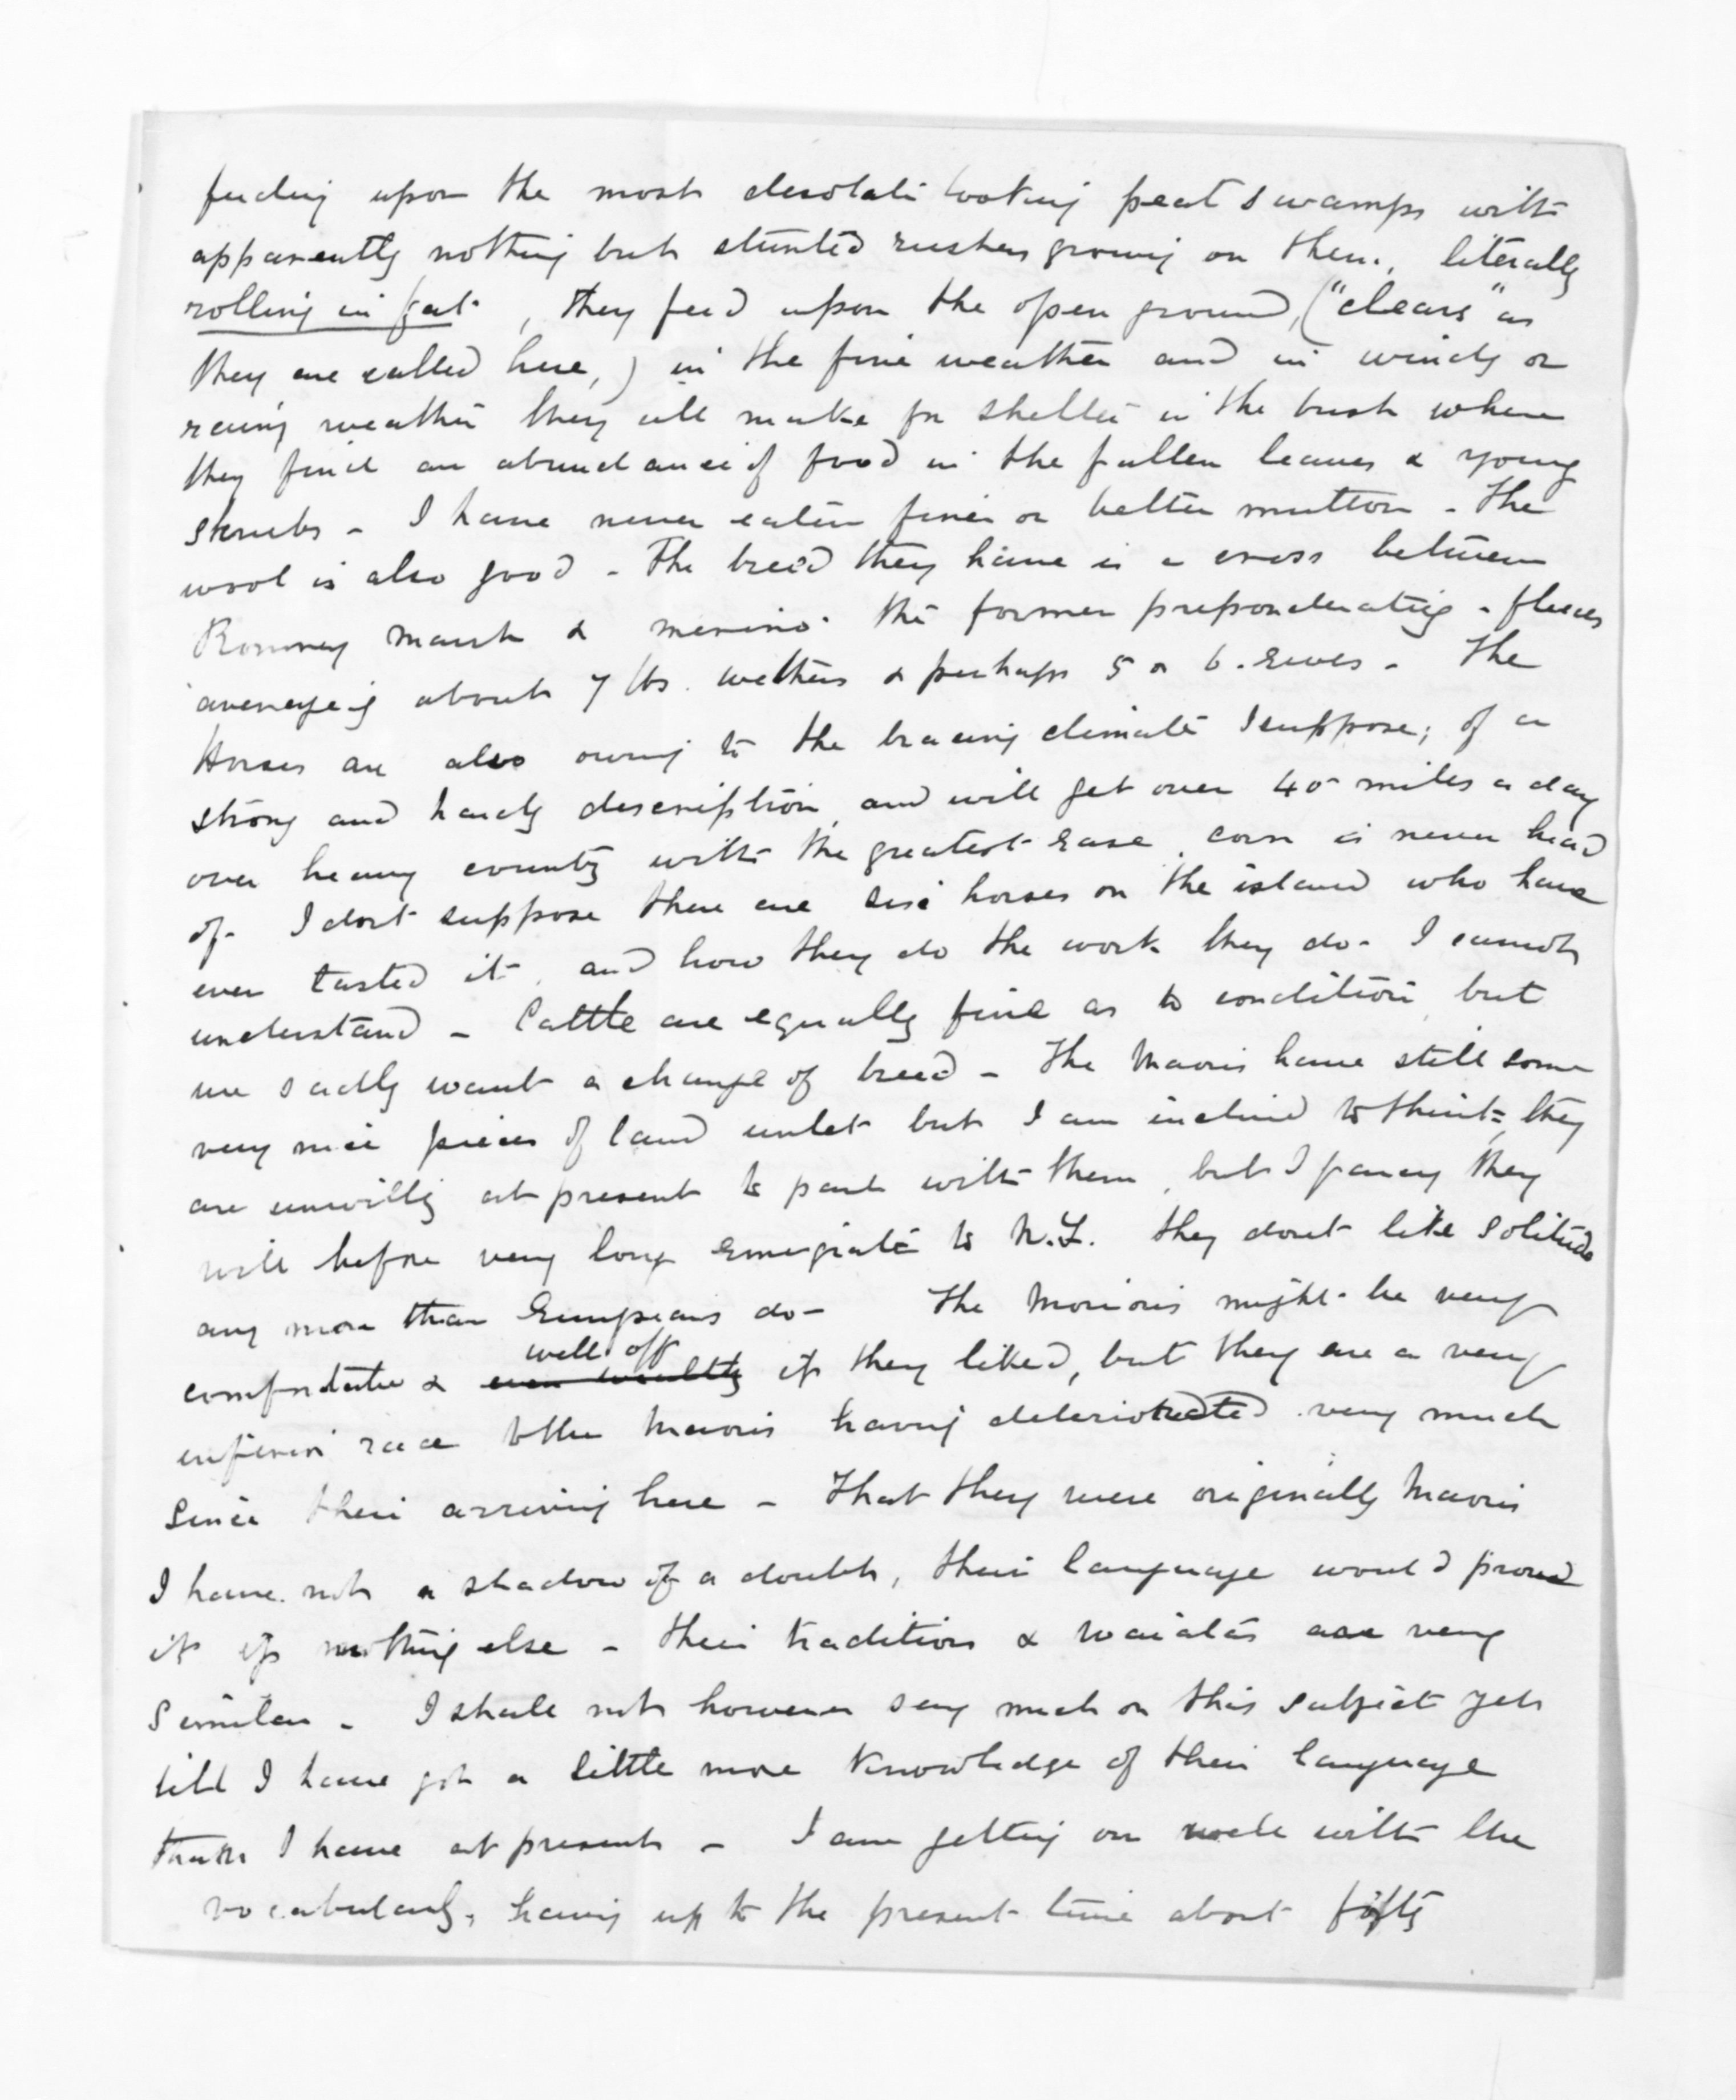 feeding upon the most desolate looking peat swamps with
apparently nothing but stunted rushes growing on them, literally
rolling in fat, they feed upon the open ground, ("clears" as
they are called here,) in the fine weather and in windy or
rainy weather they all make for shelter in the bush where
they find an abundance of food in the fallen leaves & young
shrubs - I have never eaten finer or better mutton - The
wool is also good - The breed they have is a cross between
Romney Marsh & merino. the former preponderating - fleeces
averaging about 7 lbs. wethers & perhaps 5 or 6. Ewes - The
Horses are also owing to the bracing climate I suppose; of a
strong and hardy description, and will get over 40 miles a day
over heavy country with the greatest ease, corn is never heard
of - I dont suppose there are six horses on the island who have
ever tasted it, and how they do the work they do - I cannot
understand - Cattle are equally fine as to condition, but
we sadly want a change of breed - The Maoris have still some
very nice pieces of land unlet but I am inclined to think they
are unwilling at present to part with them, but I fancy they
will before very long Emigrate to N.Z. they dont like solitude
any more than Europeans do - The Morioris might be very
comfortable & even wealthy well off if they liked, but they are a very
inferior race to the Maoris having deteriorated very much
since their arriving here - That they were originally Maoris
I have not a shadow of a doubt, their language would prove
it if nothing else - their traditions & waiatas are very
similar - I shall not however say much on this subject yet
till I have got a little more knowledge of their language
than I have at present - I am getting on well with the
vocabulary, having up to the present time about fifty